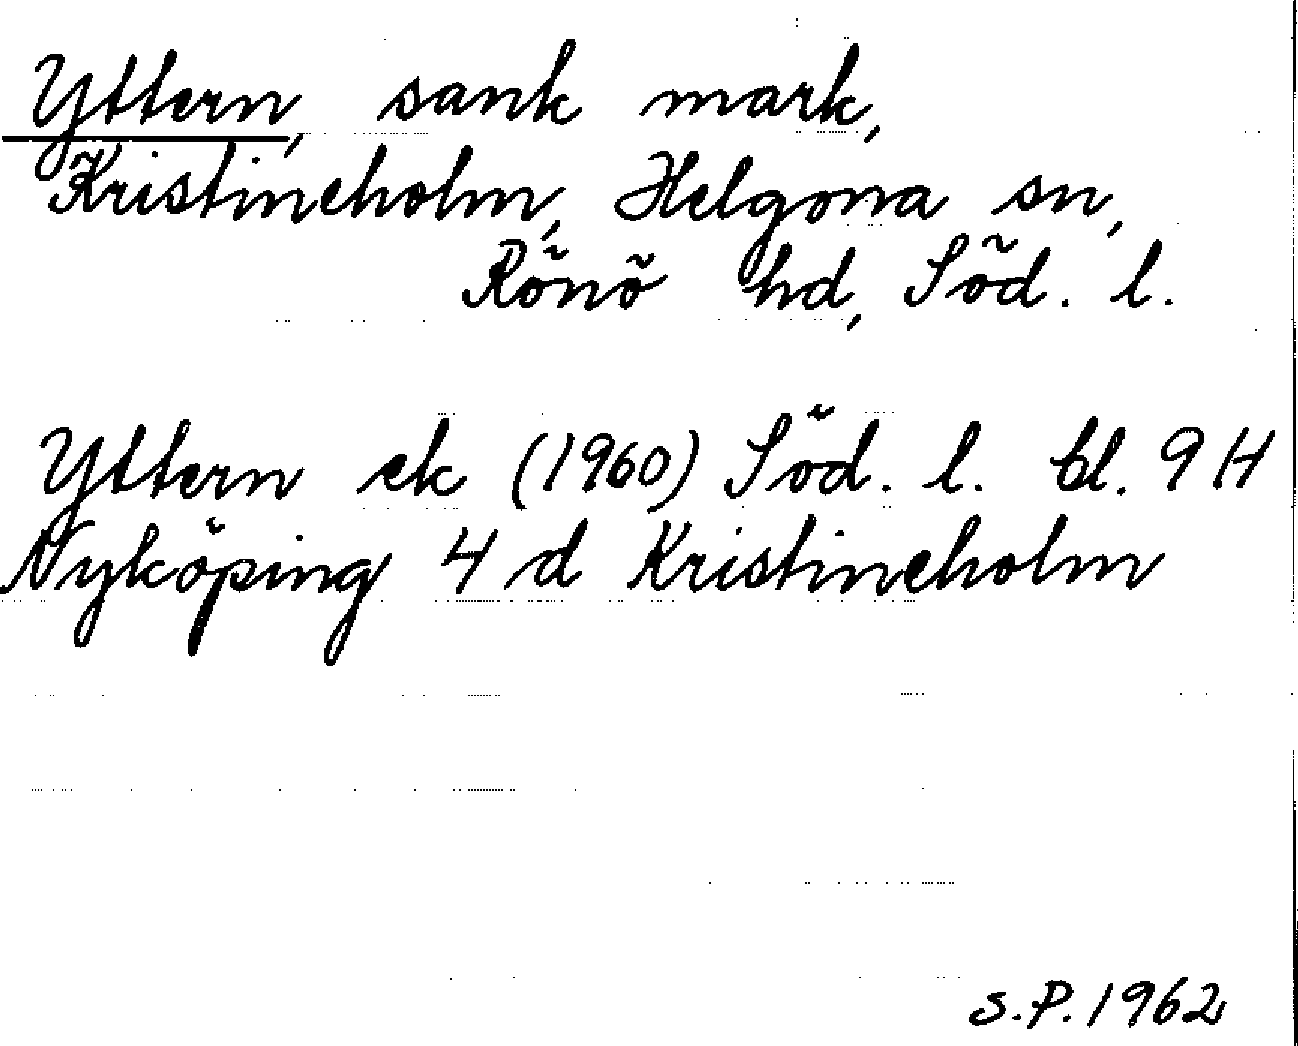 Yttern, sank mark,
Kristineholm, Helgona sn,
Rönö hd, Söd. l.
Yttern ek (1960) Söd. l. bl. 9 H
Nyköping 4 d Kristineholm
S.P. 1962